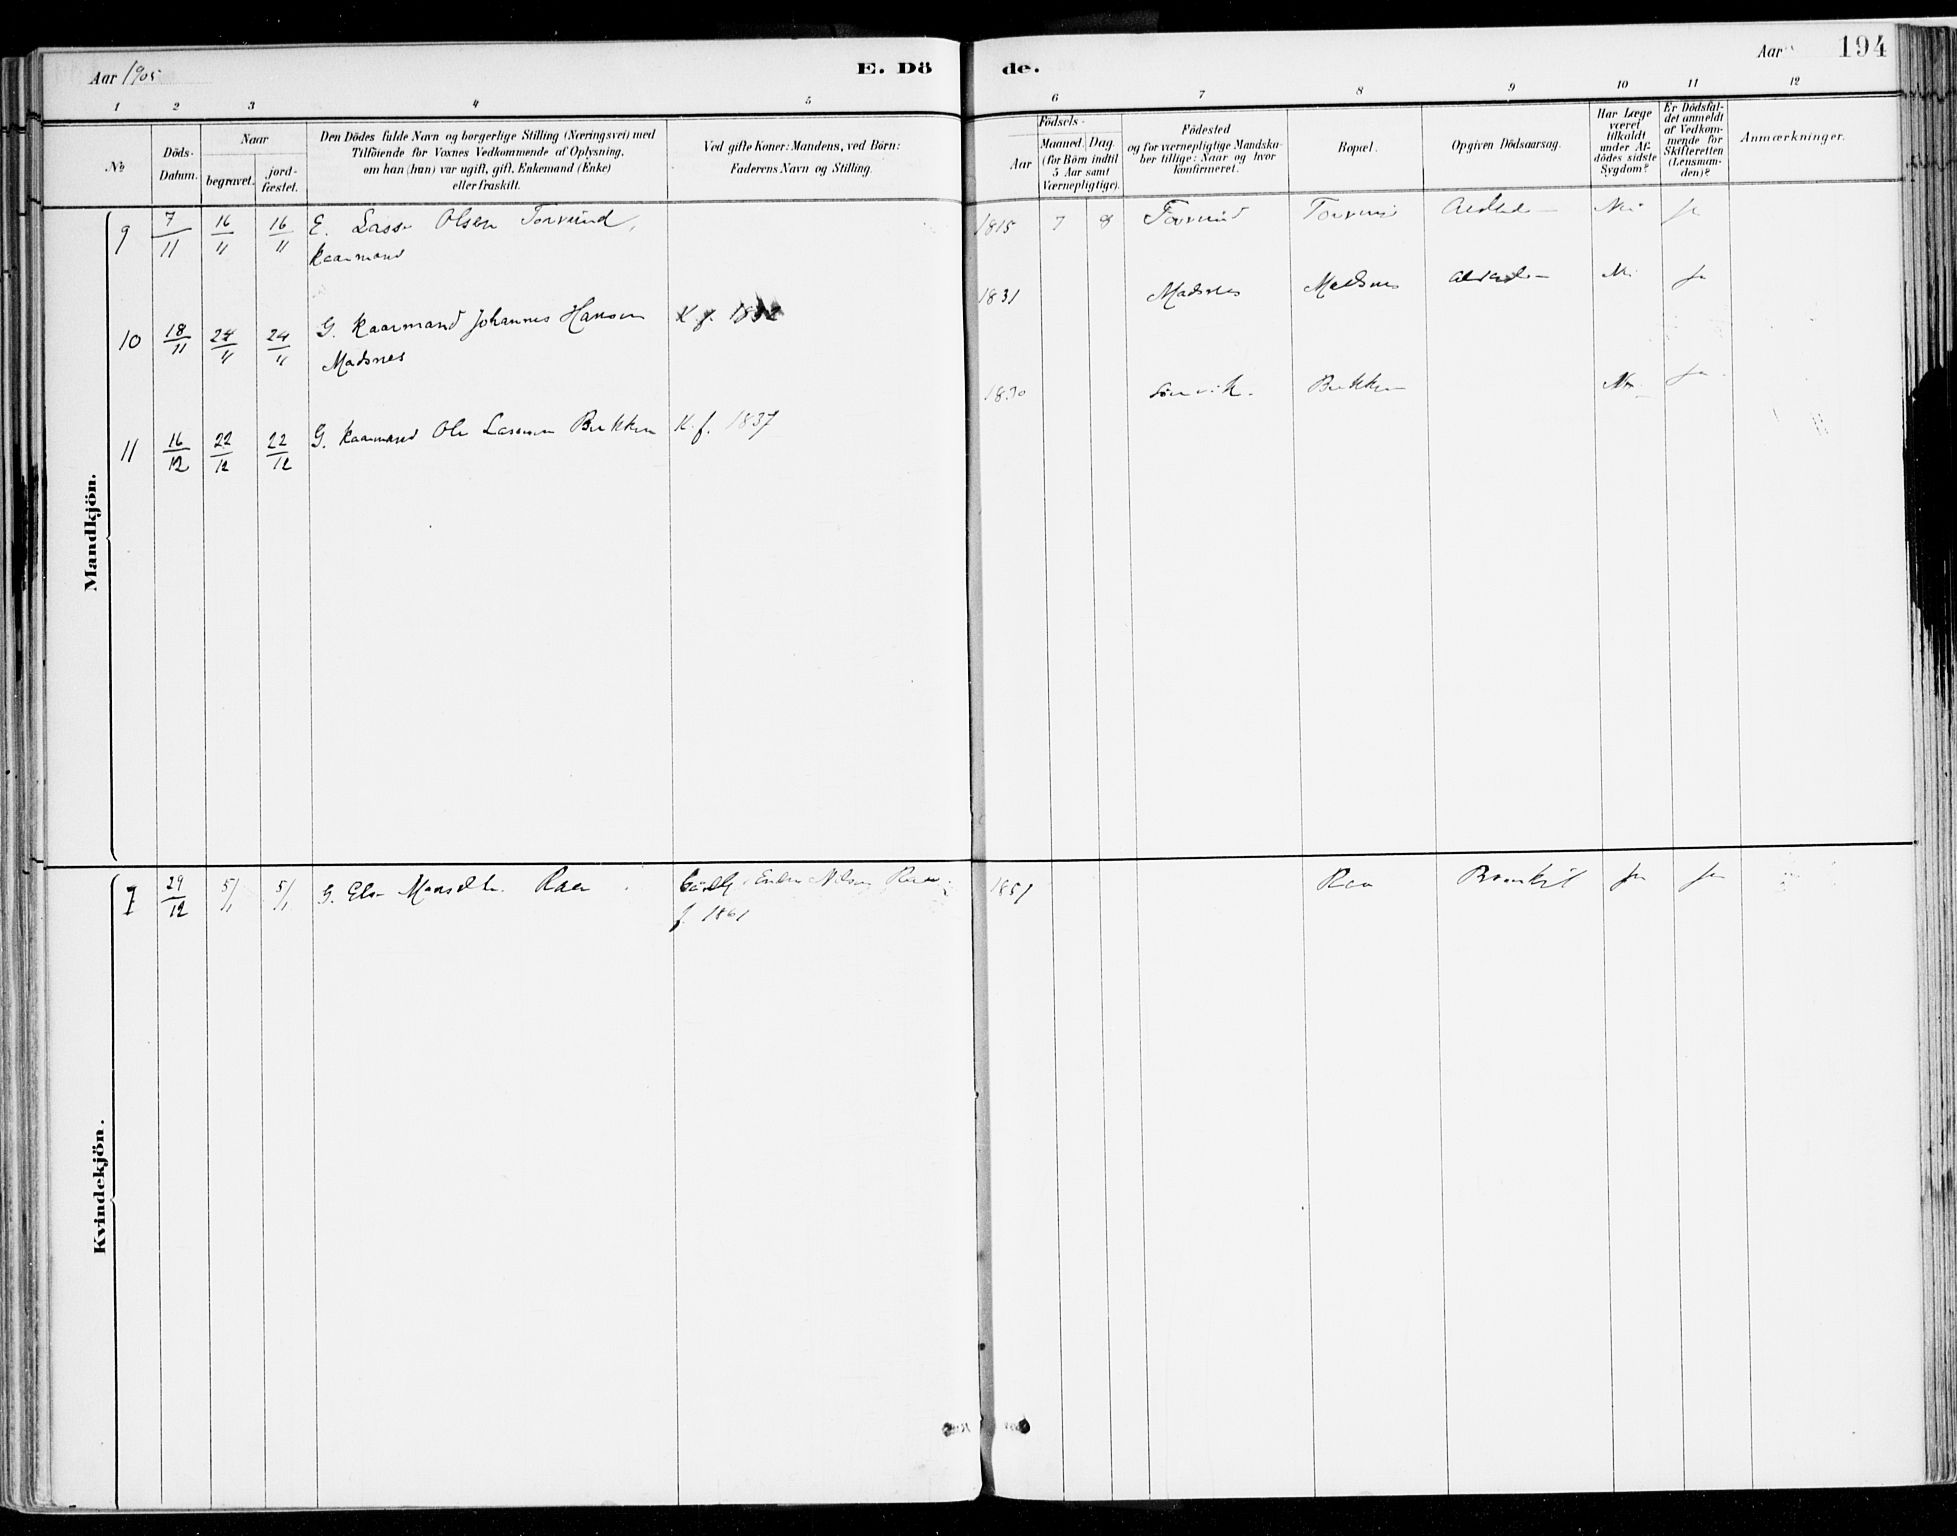 Aar 1905
E. Dö
de.
Aar
194
1 2 3 4 5 6 7 8 9 10 11 12
No
Döds-
Datum.
Naar
begravet.
jord-
fæstet.
Den Dödes fulde Navn og borgerlige Stilling (Næringsvei) med
Tilföiende for Voxnes Vedkommende af Oplysning,
om han (hun) var ugift, gift, Enkemand (Enke)
eller fraskilt.
Ved gifte Koner: Mandens, ved Börn:
Faderens Navn og Stilling.
Födsels-
Aar
Maaned. Dag.
(for Börn indtil
5 Aar samt
Værnepligtige).
Födested
og for værnepligtige Mandska-
ber tillige: Naar og hvor
konfirmeret.
Bopæl.
Opgiven Dödsaarsag.
Har Læge
været
tilkaldt
under Af-
dödes sidste
Sygdom?
Er Dödsfal-
det anmeldt
af Vedkom-
mende for
Skifteretten
(Lensman-
den)?
Anmærkninger.
Mandkjön.
9 7/11 16/11 16/11 E. Lasse Olsen Torvund, 1815 7 8 Torvund Torvund Nei Ja
Kaarmand
10 18/11 24/11 24/11 G. Kaarmand Johannes Hansen K. f. 1832 1831 Madsnes Madsnes Nei Ja
Madsnes
11 16/12 22/12 22/12 G. Kaarmand Ole Lassesen Brekken K. f. 1837 1830 Brekken Nei Ja
Kvindekjön.
7 29/12 5/1 5/1 G. Else Monsdtr. Raa Gaardb. Endre Nilsen Raa 1857 Raa Bronkit Ja Ja
f. 1861